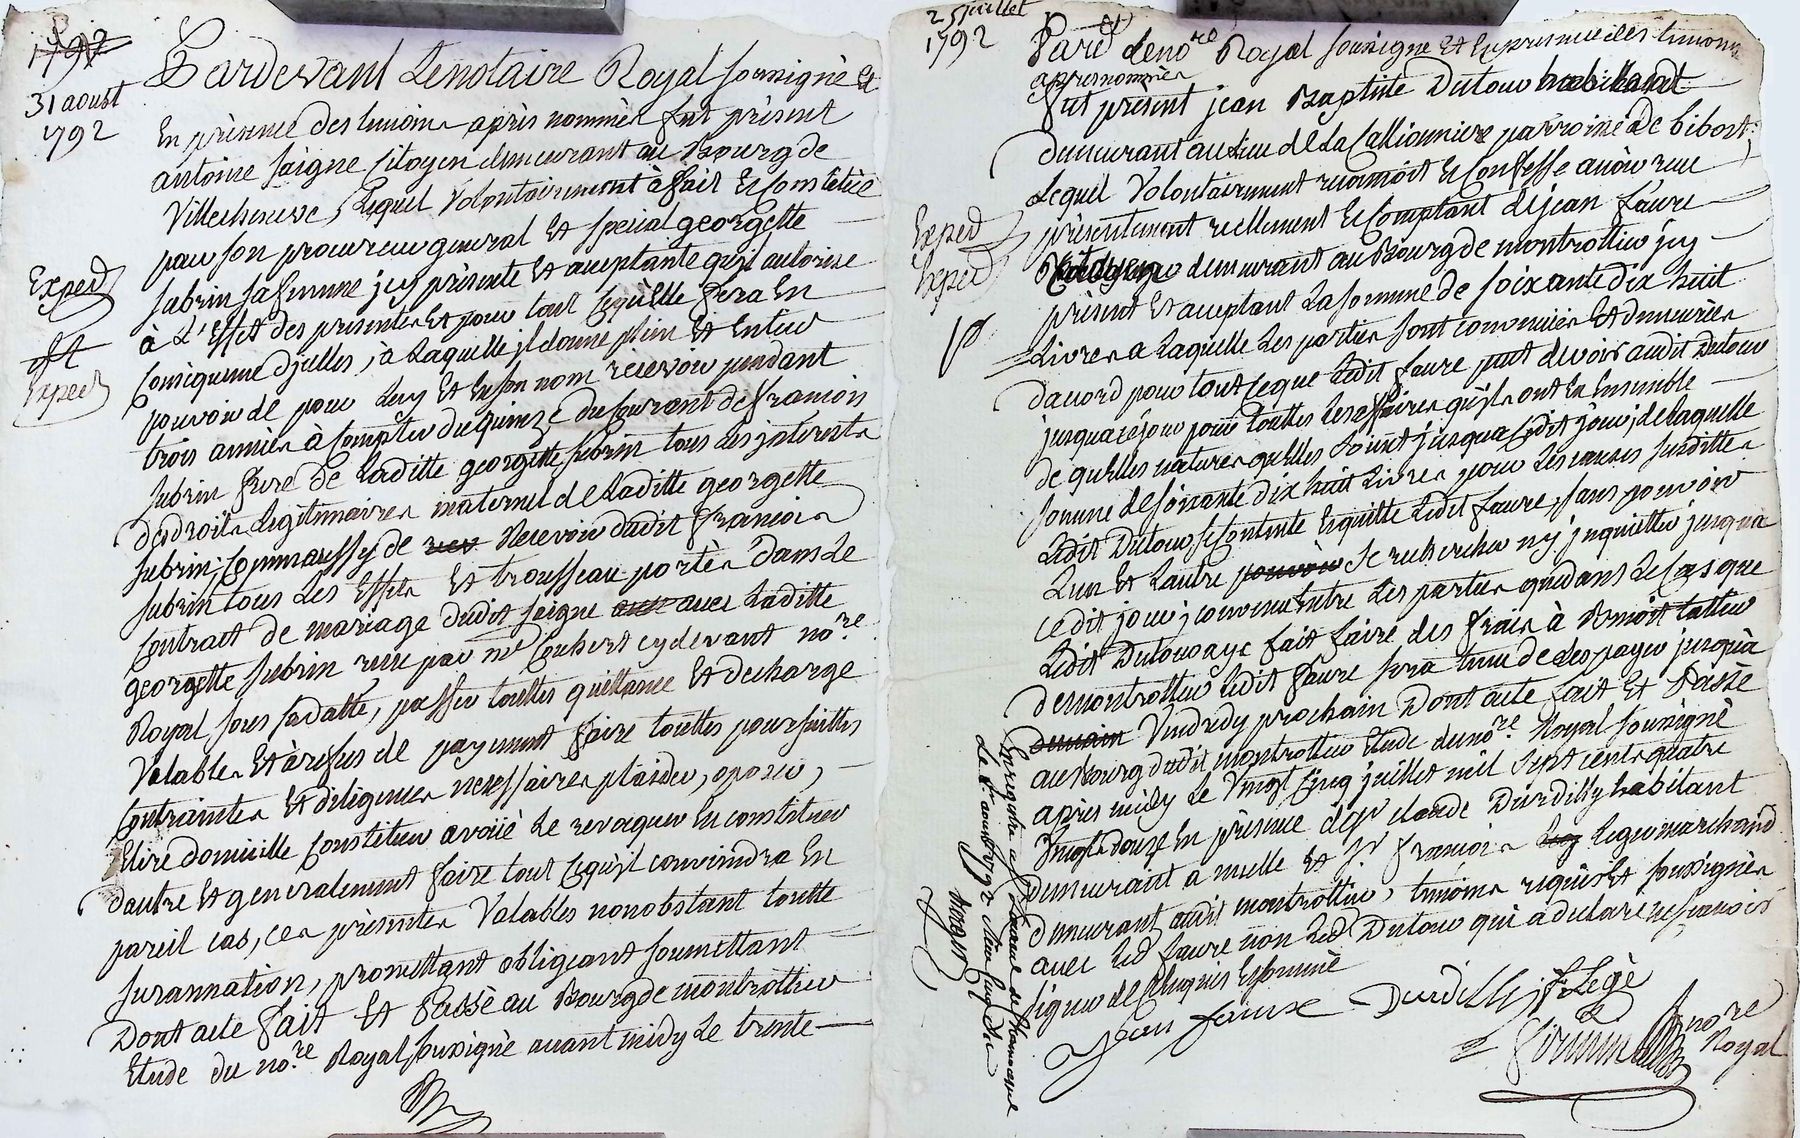 1792
31 aoust
1792
Pardevant Le notaire Royal soussigné Et
En présence des temoins après nommés fut présent
antoine saigne Citoyen demeurant au Bourg de
Villechenève, Lequel Volontairement à fait Et Constitué
pour son procureur general Et special georgette
subrin sa femme jcy présente Et acceptante qu'il autorise
à L'Effet des presentes Et pour tout ce qu'elle fera En
Consequence d'jcelles, à Laquelle jl donne plein Et Entier
pouvoir de pour Luy Et En son nom recevoir pendant
trois années à Compter du quinze du Courant de francois
subrin frere de Laditte georgette subrin tous Les jnterest
des droits Legitimaires maternel de Laditte georgette
subrin, Comm'aussy de rec Recevoir dudit francois
subrin tous Les Effets Et trousseau portés dans Le
Contrat de mariage dudit saigne avec Laditte
georgette subrin recu par me Couhert cy devant nore
Royal sous sa datte, passer touttes quittance Et decharge
Valables Et à refus de payement faire touttes poursuittes
Contraintes Et diligences necessaires plaider, oposer,
Elire domicille Constituer avoüé Le revoquer En constituer
d'autre Et generalement faire tout ce qu'jl conviendra En
pareil cas, ces présentes Valables nonobstant toutte
surannation, promettant obligeant soumettant
Dont acte fait Et Passé au Bourg de montrottier
Etude du nore Royal soussigné avant midy Le trente
Exped
ft
Exped
25 juillet
1792
Pard le nore Royal soussigné Et En presence des temoins
apres nommés
fut présent jean Baptiste Dutour habitant
demeurant au Lieu de La Callionniere parroisse de bibost
Lequel Volontairement reconnoit Et Confesse avoir reçu
présentement reellement Et Comptant de jean faure
demeurant au Bourg de montrottier jcy
présent Et acceptant La somme de soixante dix huit
Livres a Laquelle Les parties sont convenües Et demeurées
d'accord pour tout ce que Ledit faure peut devoir audit Dutour
jusqua ce jour pour touttes Les affaires qu'jls ont Eu Ensemble
de quelles natures quelles soient jusqua cedit jour, de laquelle
somme de soixante dix huit Livres pour Les causes susdittes
Ledit Dutour se Contente Et quitte Ledit faure, sans pouvoir
L'un Et L'autre pouvoir se rechercher ny jnquietter jusqua
cedit jour, convenu Entre Les parties que dans Le Cas que
Ledit Dutour aye fait faire des frais à Benoit tatteur
de montrottier Ledit faure sera tenu de Les payer jusqu'à
demain Vendredy prochain Dont acte fait Et Passé
au Bourg dudit montrottier Etude du nore Royal soussigné
après midy Le Vingt Cinq juillet mil sept cents quatre
Vingts douze En présence de sr claude Durdilly habitant
demeurant a nuelle Et sr francois Leg Leger marchand
demeurant audit montrottier, temoins requis Et soussignés
avec Led faure non Led Dutour qui a declaré ne scavoir
signer de ce Enquis Et sommé
Exped
Exped
Jean faure Durdilly f Legé
Enregistré a st Laurent de Chamousset
Le 8e aoust 1792 Recu
nore
Royal